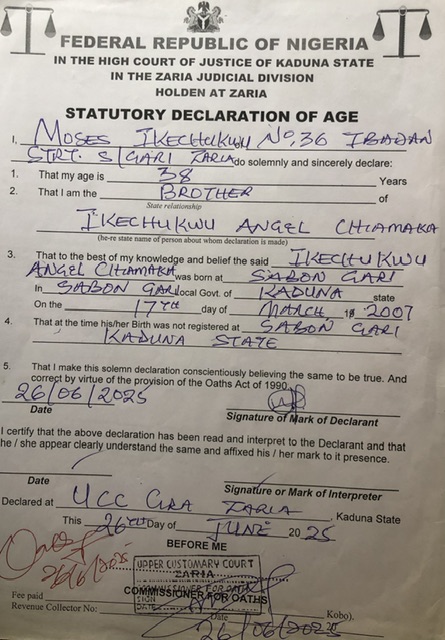 FEDERAL REPUBLIC OF NIGERIA
IN THE HIGH COURT OF JUSTICE OF KADUNA STATE
IN THE ZARIA JUDICIAL DIVISION
HOLDEN AT ZARIA
STATUTORY DECLARATION OF AGE
I, MOSES IKECHUKWU NO. 36 IBADAN
STRT. S/GARI ZARIA do solemnly and sincerely declare:
1. That my age is 38 Years
2. That I am the BROTHER of
State relationship
IKECHUKWU ANGEL CHIAMAKA
(he-re state name of person about whom declaration is made)
3. That to the best of my knowledge and belief the said IKECHUKWU
ANGEL CHIAMAKA was born at SABON GARI
In SABON GARI local Govt. of KADUNA state
On the 17TH day of MARCH 19 2007
4. That at the time his/her Birth was not registered at SABON GARI
KADUNA STATE
5. That I make this solemn declaration conscientiously believing the same to be true. And
correct by virtue of the provision of the Oaths Act of 1990.
26/06/2025
Date Signature of Mark of Declarant
I certify that the above declaration has been read and interpret to the Declarant and that
he / she appear clearly understand the same and affixed his / her mark to it presence.
Date Signature or Mark of Interpreter
Declared at UCC GRA ZARIA, Kaduna State
This 26TH Day of JUNE 20 25
BEFORE ME
26/6/2025
UPPER CUSTOMARY COURT
ZARIA
COMMISSIONER FOR OATH
SIGN
DATE
COMMISSIONER FOR OATHS
Fee paid Kobo).
Revenue Collector No: Date
26/06/2025